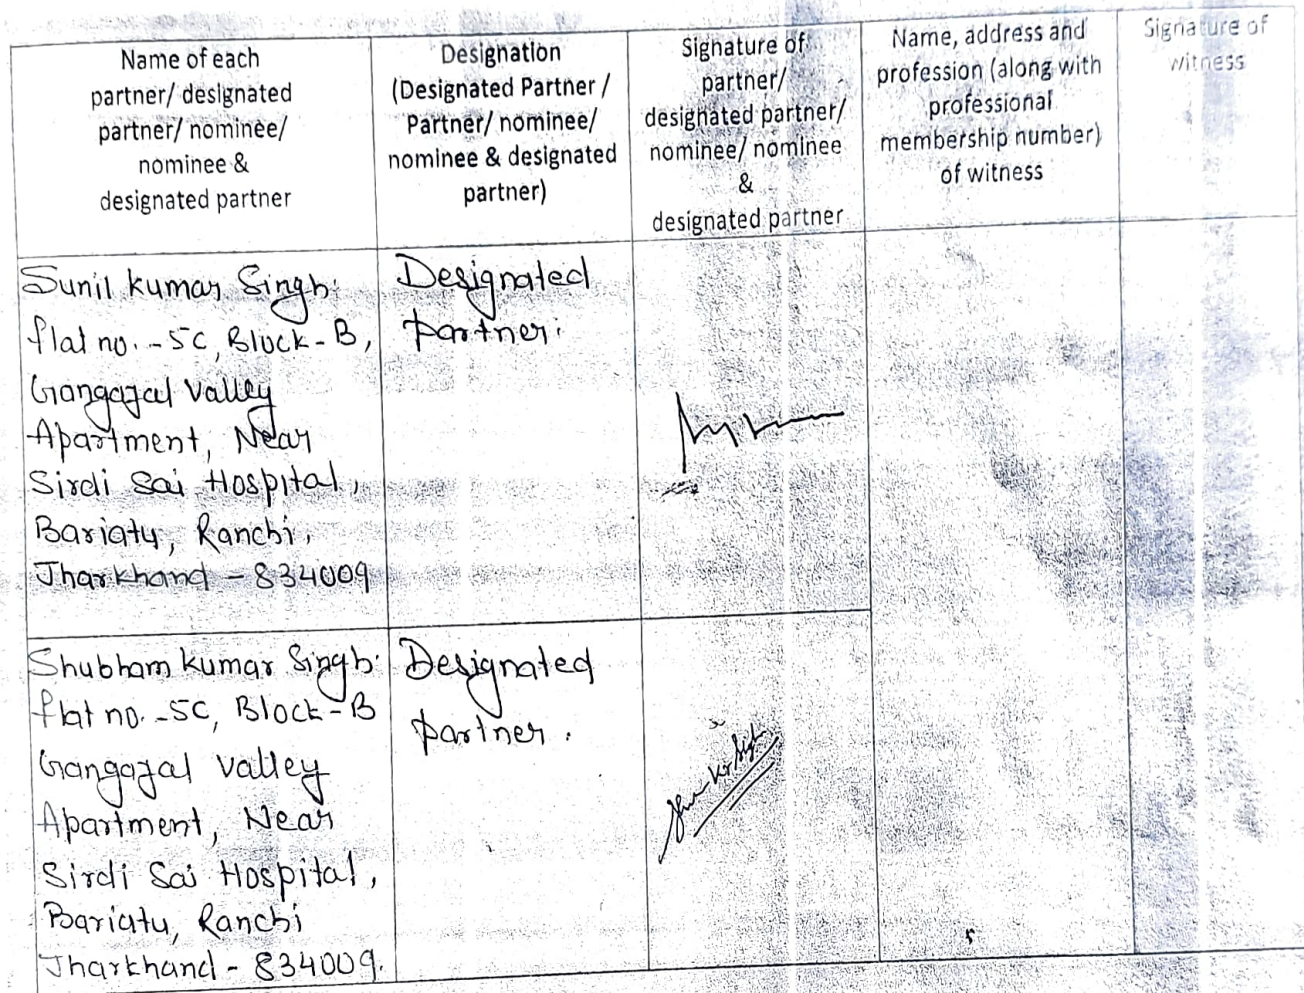 Name of each
partner/ designated
partner/ nominee/
nominee &
designated partner
Designation
(Designated Partner /
Partner/ nominee/
nominee & designated
partner)
Signature of
partner/
designated partner/
nominee/ nominee
&
designated partner
Name, address and
profession (along with
professional
membership number)
of witness
Signature of
witness
Sunil kumar Singh.
flat no. - 5C, Block - B,
Gangajal Valley
Apartment, Near
Sirdi Sai Hospital,
Bariatu, Ranchi,
Jharkhand - 834009
Designated
partner.
Shubham kumar Singh.
flat no. - 5C, Block - B
Gangajal valley
Apartment, Near
Sirdi Sai Hospital,
Bariatu, Ranchi
Jharkhand - 834009.
Designated
partner.